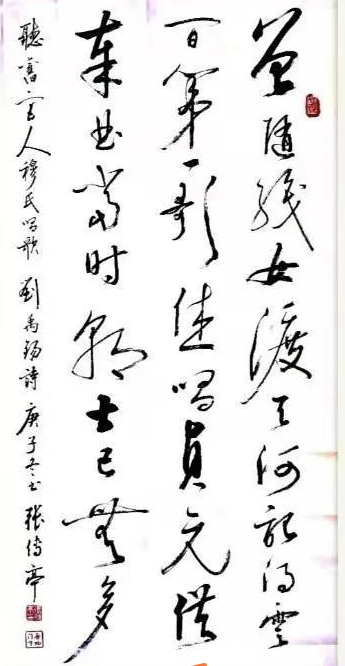 曾随織女渡天河記得雲
间第一歌休唱貞元供
奉曲当时朝士已無多
聽舊宫人穆氏唱歌 劉禹錫詩 庚子冬书 張传亭